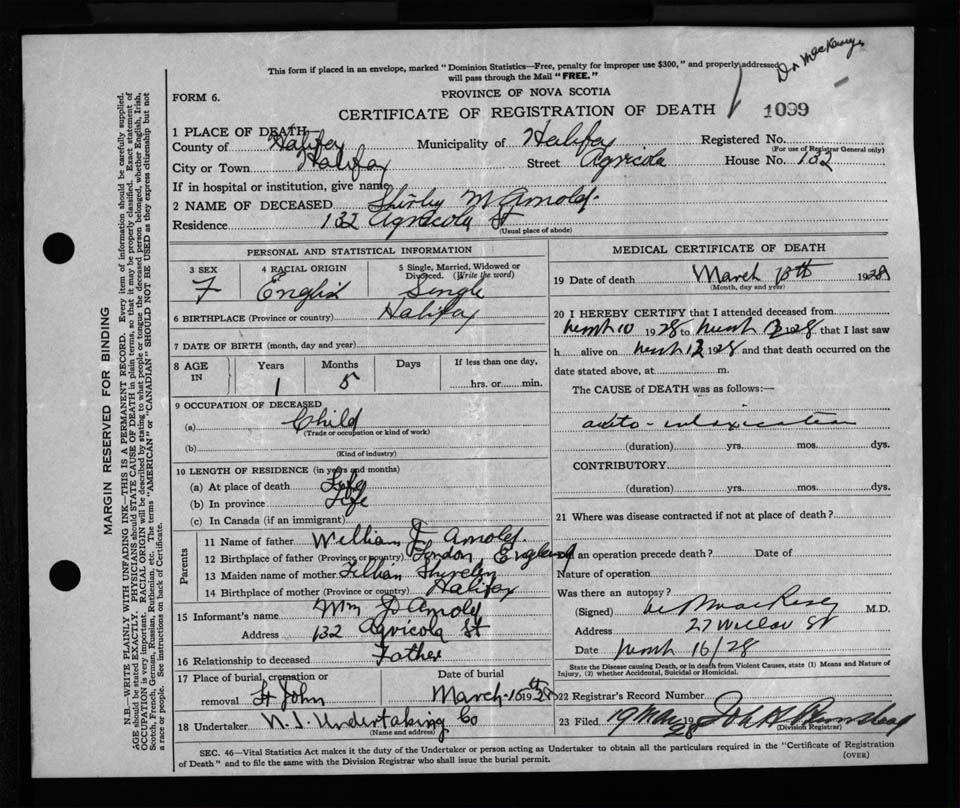 Dr MacKenzie
This form if placed in an envelope, marked "Dominion Statistics—Free, penalty for improper use $300," and properly addressed
will pass through the Mail "FREE."
FORM 6.
PROVINCE OF NOVA SCOTIA
CERTIFICATE OF REGISTRATION OF DEATH 1099
1 PLACE OF DEATH
County of Halifax Municipality of Halifax Registered No.
(For use of Registrar General only)
City or Town Halifax Street Agricola House No. 132
If in hospital or institution, give name
2 NAME OF DECEASED Shirley M Arnold.
Residence 132 Agricola St
(Usual place of abode)
PERSONAL AND STATISTICAL INFORMATION
3 SEX 4 RACIAL ORIGIN 5 Single, Married, Widowed or
Divorced. (Write the word)
F English Single
6 BIRTHPLACE (Province or country) Halifax
7 DATE OF BIRTH (month, day and year)
8 AGE IN Years Months Days If less than one day,
1 5 hrs. or min.
9 OCCUPATION OF DECEASED
(a) Child
(Trade or occupation or kind of work)
(b)
(Kind of industry)
10 LENGTH OF RESIDENCE (in years and months)
(a) At place of death Life
(b) In province Life
(c) In Canada (if an immigrant)
Parents
11 Name of father William J Arnold.
12 Birthplace of father (Province or country) London, England
13 Maiden name of mother Lillian
14 Birthplace of mother (Province or country) Halifax
15 Informant's name Wm J Arnold
Address 132 Agricola St
16 Relationship to deceased Father
17 Place of burial, cremation or Date of burial
removal St John March 16th 1928
18 Undertaker N.S. Undertaking Co
(Name and address)
MEDICAL CERTIFICATE OF DEATH
19 Date of death March 13th 1928
(Month, day and year)
20 I HEREBY CERTIFY that I attended deceased from
March 10 1928 to March 13 1928 that I last saw
h alive on March 13 1928 and that death occurred on the
date stated above, at m.
The CAUSE of DEATH was as follows:—
auto-intoxication
(duration) yrs. mos. dys.
CONTRIBUTORY
(duration) yrs. mos. dys.
21 Where was disease contracted if not at place of death?
an operation precede death? Date of
Nature of operation
Was there an autopsy?
(Signed) M.D.
Address 27 Willow St
Date March 16/28
State the Disease causing Death, or in death from Violent Causes, state (1) Means and Nature of
Injury, (2) whether Accidental, Suicidal or Homicidal.
22 Registrar's Record Number
23 Filed 19 Mar 1928
(Division Registrar)
SEC. 46—Vital Statistics Act makes it the duty of the Undertaker or person acting as Undertaker to obtain all the particulars required in the "Certificate of Registration
of Death" and to file the same with the Division Registrar who shall issue the burial permit.
(OVER)
MARGIN RESERVED FOR BINDING
N.B.—WRITE PLAINLY WITH UNFADING INK—THIS IS A PERMANENT RECORD. Every item of information should be carefully supplied.
AGE should be stated EXACTLY. PHYSICIANS should STATE CAUSE OF DEATH in plain terms, so that it may be properly classified. Exact statement of
OCCUPATION is very important. RACIAL ORIGIN will be described by stating to what people or tongue the deceased person belonged, whether English, Irish,
Scotch, French, German, Russian, Ruthenian, etc. The terms "AMERICAN" or "CANADIAN" SHOULD NOT BE USED as they express citizenship but not
a race or people. See instructions on back of Certificate.